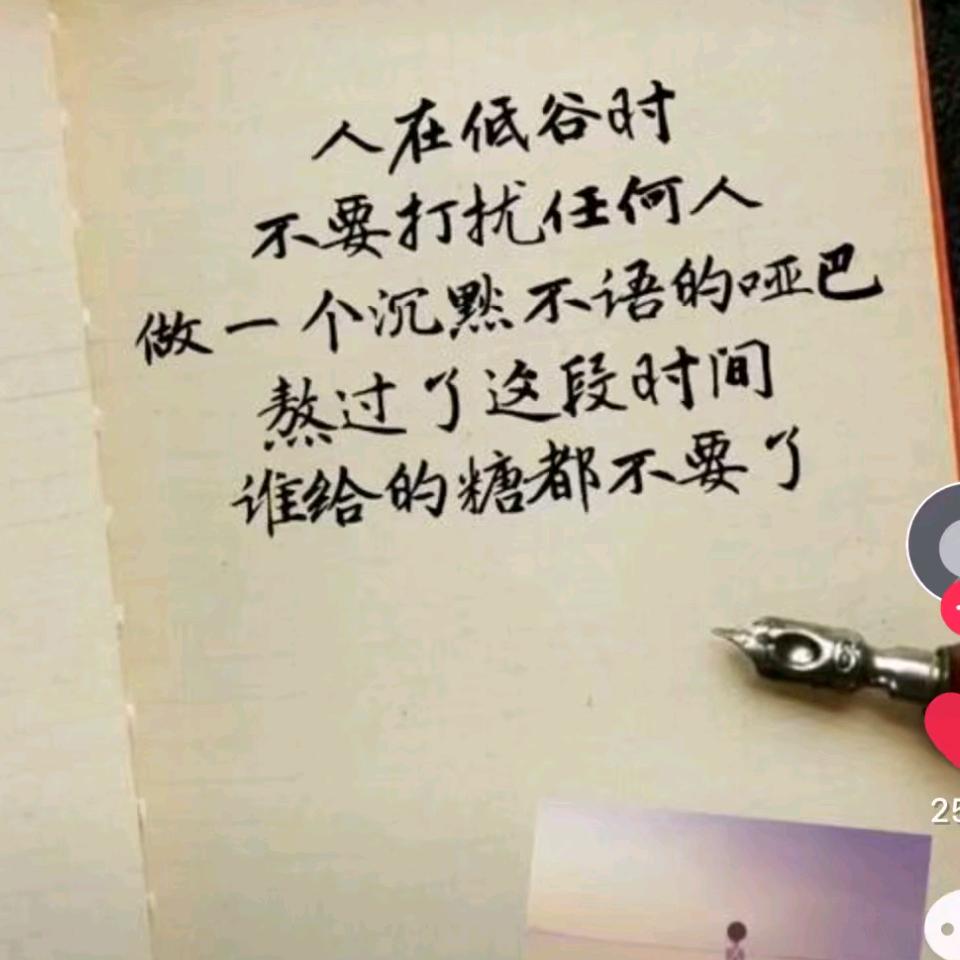 人在低谷时
不要打扰任何人
做一个沉默不语的哑巴
熬过了这段时间
谁给的糖都不要了
25